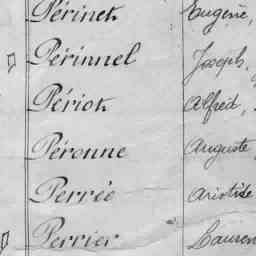 Périnet Eugène,
Périnnel Joseph,
Périot Alfred,
Péronne Auguste
Perrée Aristide
Perrier Lauren